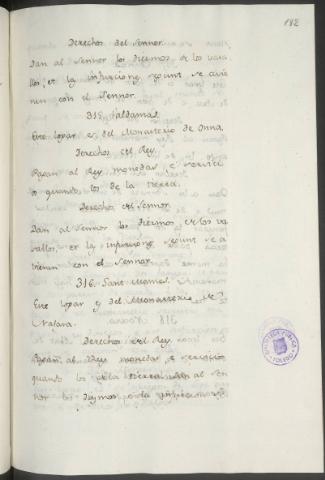 182
Derechos del Sennor.
Dan al Sennor los diezmos de los vasa
llos, et la infurcion, segunt se avie
nen con el Sennor.
315. Valdamas.
Este logar es del Monasterio de Onna.
Derechos del Rey.
Pagan al Rey monedas e servici
os quando los de la tierra.
Derechos del Sennor.
Dan al Sennor los diezmos de los va
sallos, et la infurcion, segunt se a
vienen con el Sennor.
316. Sant Mames.
Este logar es del Monasterio de
Najara.
Derechos del Rey.
Pagan al Rey monedas e servicios
quando los de la tierra. Dan al Sen
nor los diezmos
BIBLIOTECA PUBLICA
TOLEDO